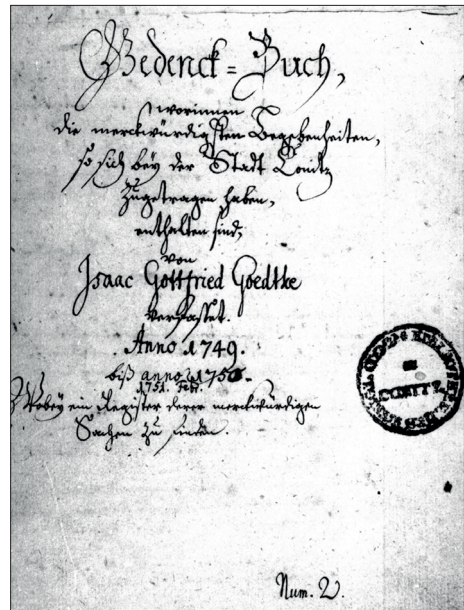 Gedenck=Buch,
worinnen
die merckwürdigsten Begebenheiten,
so sich bey der Stadt Conitz
zugetragen haben,
enthalten sind,
von
Isaac Gottfried Goedtke
verfasset.
Anno 1749.
biß anno 1750.
1751. Febr.
Wobey ein Register derer merckwürdigen
Sachen zu finden.
CONITZ
Num. 2.